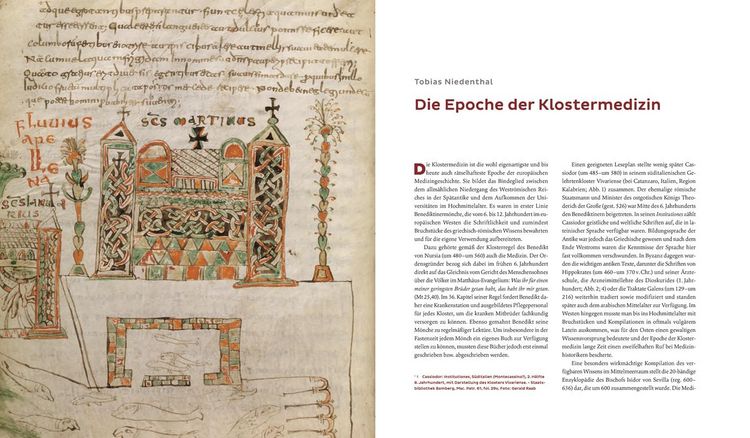 FLUVIUS
SCS MARTINUS
APE
NA
Tobias Niedenthal
Die Epoche der Klostermedizin
Die Klostermedizin ist die wohl eigenartigste und bis
heute auch rätselhafteste Epoche der europäischen
Medizingeschichte. Sie bildet das Bindeglied zwischen
dem allmählichen Niedergang des Weströmischen Rei-
ches in der Spätantike und dem Aufkommen der Uni-
versitäten im Hochmittelalter. Es waren in erster Linie
Benediktinermönche, die vom 6. bis 12. Jahrhundert im eu-
ropäischen Westen die Schriftlichkeit und zumindest
Bruchstücke des griechisch-römischen Wissens bewahrten
und für die eigene Verwendung aufbereiteten.
Dazu gehörte gemäß der Klosterregel des Benedikt
von Nursia (um 480–um 560) auch die Medizin. Der Or-
densgründer bezog sich dabei im frühen 6. Jahrhundert
direkt auf das Gleichnis vom Gericht des Menschensohnes
über die Völker im Matthäus-Evangelium: Was ihr für einen
meiner geringsten Brüder getan habt, das habt ihr mir getan.
(Mt 25,40). Im 36. Kapitel seiner Regel fordert Benedikt da-
her eine Krankenstation und ausgebildetes Pflegepersonal
für jedes Kloster, um die kranken Mitbrüder fachkundig
versorgen zu können. Ebenso gemahnt Benedikt seine
Mönche zu regelmäßiger Lektüre. Um insbesondere in der
Fastenzeit jedem Mönch ein eigenes Buch zur Verfügung
stellen zu können, mussten diese Bücher jedoch erst einmal
geschrieben bzw. abgeschrieben werden.
1 Cassiodor: Institutiones, Süditalien (Montecassino?), 2. Hälfte
8. Jahrhundert, mit Darstellung des Klosters Vivariense. – Staats-
bibliothek Bamberg, Msc. Patr. 61, fol. 29v. Foto: Gerald Raab
Einen geeigneten Leseplan stellte wenig später Cas-
siodor (um 485–um 580) in seinem süditalienischen Ge-
lehrtenkloster Vivariense (bei Catanzaro, Italien, Region
Kalabrien; Abb. 1) zusammen. Der ehemalige römische
Staatsmann und Minister des ostgotischen Königs Theo-
derich der Große (gest. 526) war Mitte des 6. Jahrhunderts
den Benediktinern beigetreten. In seinen Institutiones zählt
Cassiodor geistliche und weltliche Schriften auf, die in la-
teinischer Sprache verfügbar waren. Bildungssprache der
Antike war jedoch das Griechische gewesen und nach dem
Ende Westroms waren die Kenntnisse der Sprache hier
fast vollkommen verschwunden. In Byzanz dagegen wur-
den die wichtigen antiken Texte, darunter die Schriften von
Hippokrates (um 460–um 370 v. Chr.) und seiner Ärzte-
schule, die Arzneimittellehre des Dioskurides (1. Jahr-
hundert; Abb. 2; 4) oder die Traktate Galens (um 129–um
216) weiterhin tradiert sowie modifiziert und standen
später auch dem arabischen Mittelalter zur Verfügung. Im
Westen hingegen musste man bis ins Hochmittelalter mit
Bruchstücken und Kompilationen in oftmals vulgärem
Latein auskommen, was für den Osten einen gewaltigen
Wissensvorsprung bedeutete und der Epoche der Kloster-
medizin lange Zeit einen zweifelhaften Ruf bei Medizin-
historikern bescherte.
Eine besonders wirkmächtige Kompilation des ver-
fügbaren Wissens im Mittelmeerraum stellt die 20-bändige
Enzyklopädie des Bischofs Isidor von Sevilla (reg. 600–
636) dar, die um 600 zusammengestellt wurde. Die Medi-